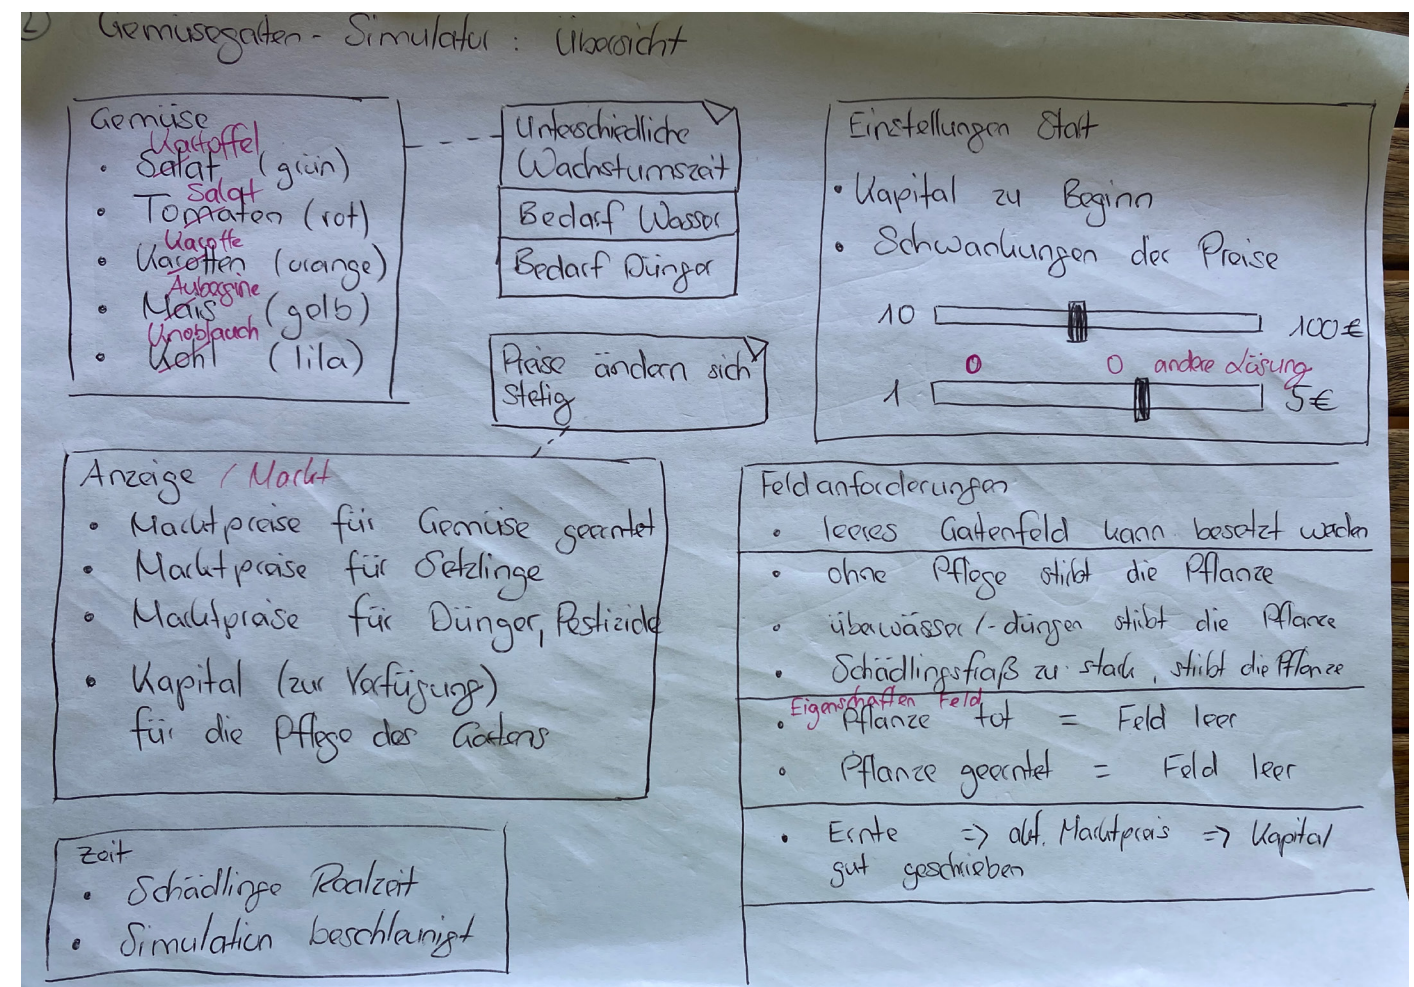 2) Gemüsegarten - Simulator : Übersicht
Gemüse
Kartoffel
• Salat (grün)
Salat
• Tomaten (rot)
Karotte
• Karotten (orange)
Aubagine
• Mais (gelb)
Knoblauch
• Kohl (lila)
Unterschiedliche
Wachstumszeit
Bedarf Wasser
Bedarf Dünger
Preise ändern sich
stetig
Einstellungen Start
• Kapital zu Beginn
• Schwankungen der Preise
10 100€
O O andere Lösung
1 5€
Anzeige / Markt
• Marktpreise für Gemüse geerntet
• Marktpreise für Setzlinge
• Marktpreise für Dünger, Pestizide
• Kapital (zur Verfügung)
für die Pflege des Gartens
Feldanforderungen
• leeres Gartenfeld kann besetzt werden
• ohne Pflege stirbt die Pflanze
• überwässer/-düngen stirbt die Pflanze
• Schädlingsfraß zu stark, stirbt die Pflanze
Eigenschaften Feld
• Pflanze tot = Feld leer
• Pflanze geerntet = Feld leer
• Ernte => akt. Marktpreis => Kapital
gut geschrieben
Zeit
• Schädlinge Realzeit
• Simulation beschleunigt